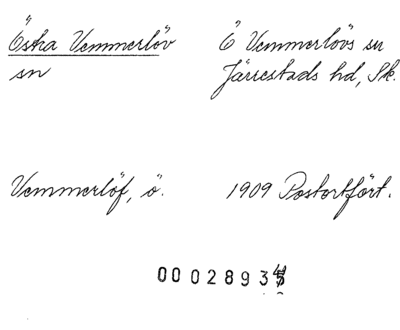 Östra Vemmerlöv Ö Vemmerlövs sn
sn Järrestads hd, Sk.
Vemmerlöf, ö. 1909 Postortfört.
000289